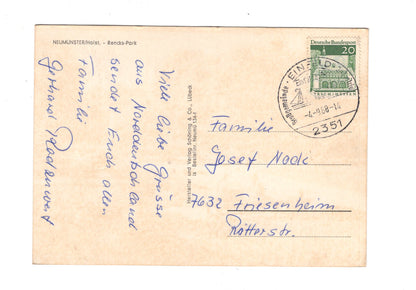 NEUMÜNSTER/Holst. - Rencks-Park
Viele liebe Grüsse
aus Norddeutschland
sendet Euch allen
Familie
Gerhard
Hersteller und Verlag Schöning & Co., Lübeck
Deutsche Bundespost
20
EINFELD
-4.-9.68-18
2351
Familie
Josef Nock
7632 Friesenheim
Rötterstr.